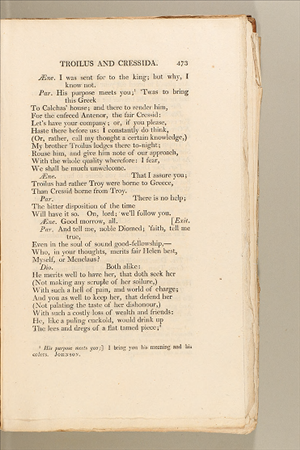 TROILUS AND CRESSIDA. 473
Æne. I was sent for to the king; but why, I
know not.
Par. His purpose meets you;¹ 'Twas to bring
this Greek
To Calchas' house; and there to render him,
For the enfreed Antenor, the fair Cressid:
Let's have your company; or, if you please,
Haste there before us: I constantly do think,
(Or, rather, call my thought a certain knowledge,)
My brother Troilus lodges there to-night;
Rouse him, and give him note of our approach,
With the whole quality wherefore: I fear,
We shall be much unwelcome.
Æne. That I assure you;
Troilus had rather Troy were borne to Greece,
Than Cressid borne from Troy.
Par. There is no help;
The bitter disposition of the time
Will have it so. On, lord; we'll follow you.
Æne. Good morrow, all. [Exit.
Par. And tell me, noble Diomed; 'faith, tell me
true,
Even in the soul of sound good-fellowship,—
Who, in your thoughts, merits fair Helen best,
Myself, or Menelaus?
Dio. Both alike:
He merits well to have her, that doth seek her
(Not making any scruple of her soilure,)
With such a hell of pain, and world of charge;
And you as well to keep her, that defend her
(Not palating the taste of her dishonour,)
With such a costly loss of wealth and friends:
He, like a puling cuckold, would drink up
The lees and dregs of a flat tamed piece;²
¹ His purpose meets you;] I bring you his meaning and his
orders. JOHNSON.